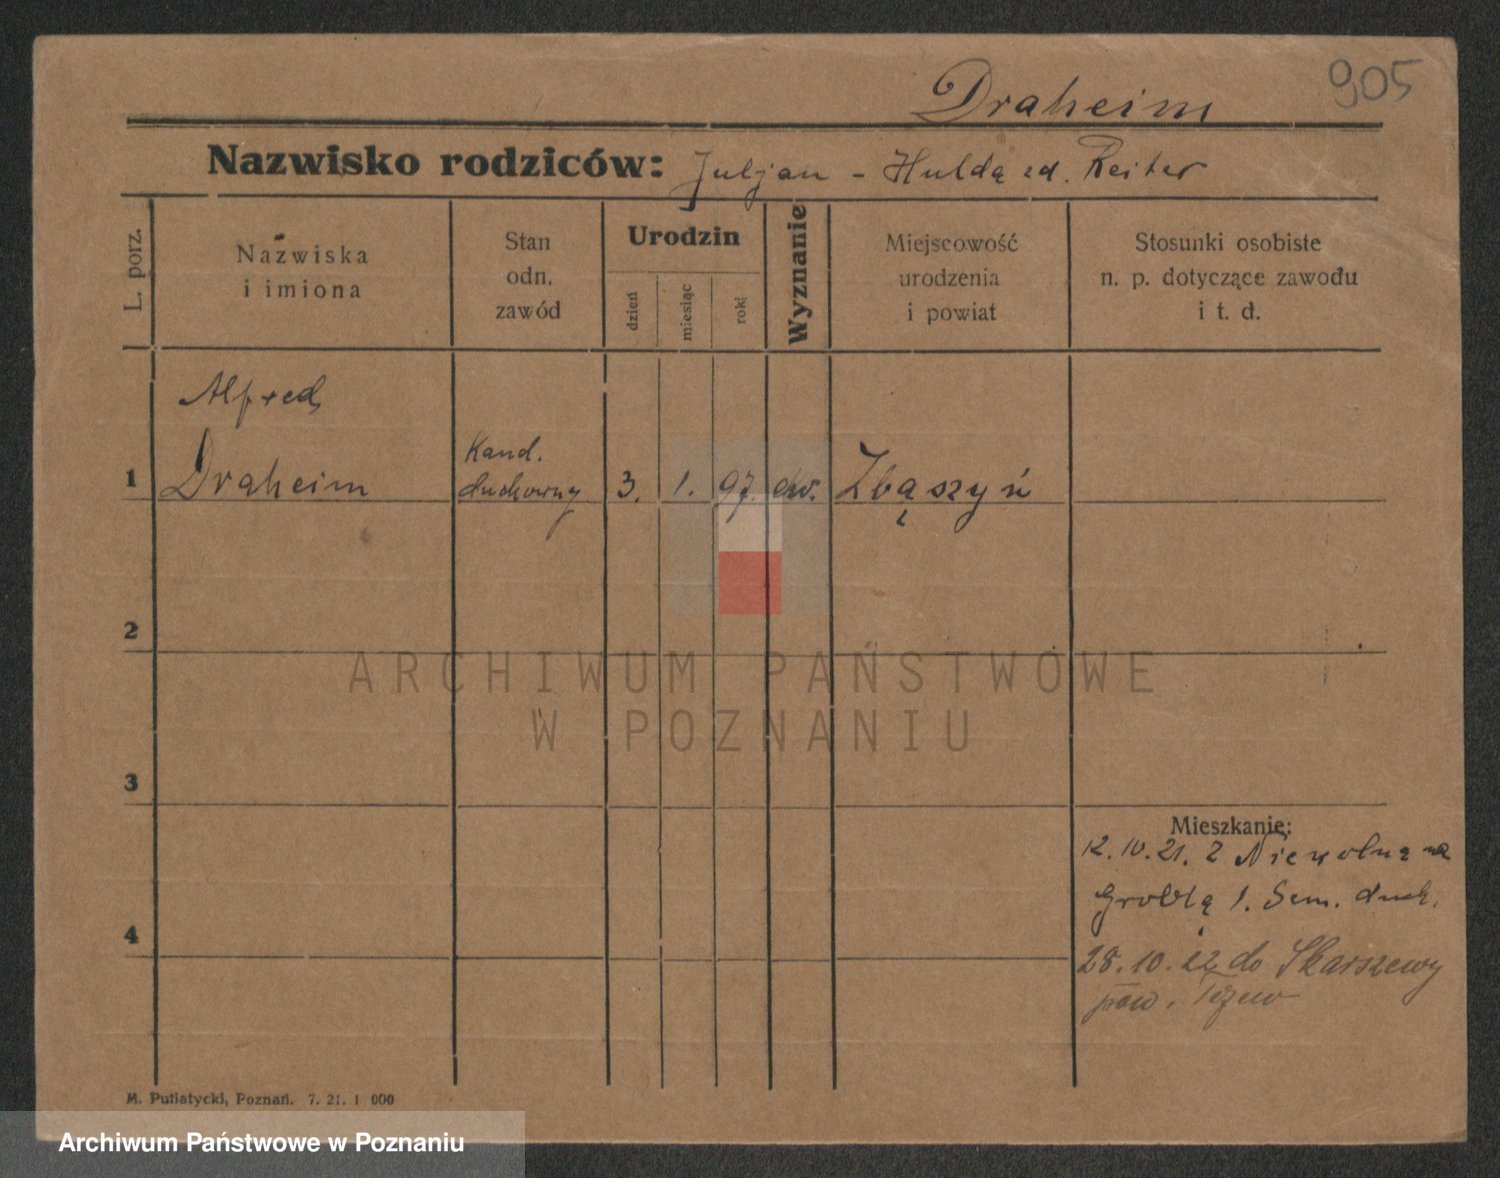 905
Draheim
Nazwisko rodziców: Juljan - Huldą zd. Reiter
L. porz.
Nazwiska
i imiona
Stan
odn.
zawód
Urodzin
dzień
miesiąc
rok
Wyznanie
Miejscowość
urodzenia
i powiat
Stosunki osobiste
n. p. dotyczące zawodu
i t. d.
Alfred
1 Draheim
Kand.
duchowny
3. 1. 97. ew. Zbąszyń
2
3
4
Mieszkanie:
12.10.21. z na
Groblą 1. Sem. duch.
28.10.22 do Skarszewy
pow. Tczew
ARCHIWUM PAŃSTWOWE
W POZNANIU
M. Putiatycki, Poznań. 7. 21. 1 000
Archiwum Państwowe w Poznaniu